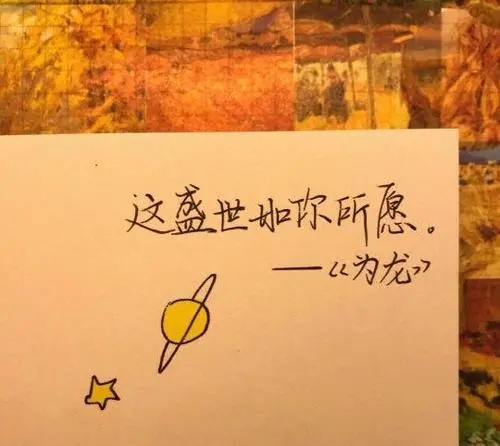 这盛世如你所愿。
——《为龙》